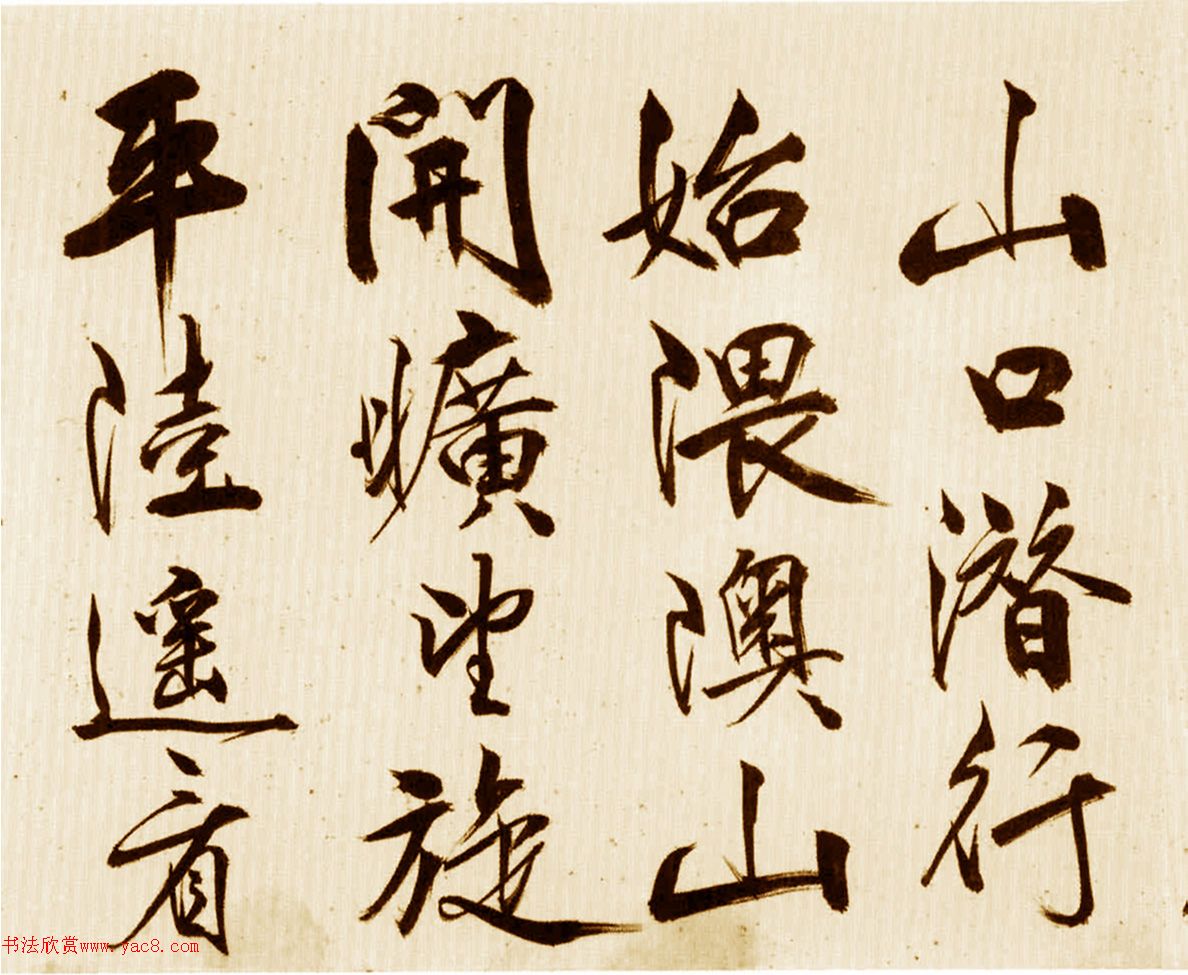 山口潛行
始隈隩山
開曠望旋
平陸遥看
书法欣赏www.yac8.com